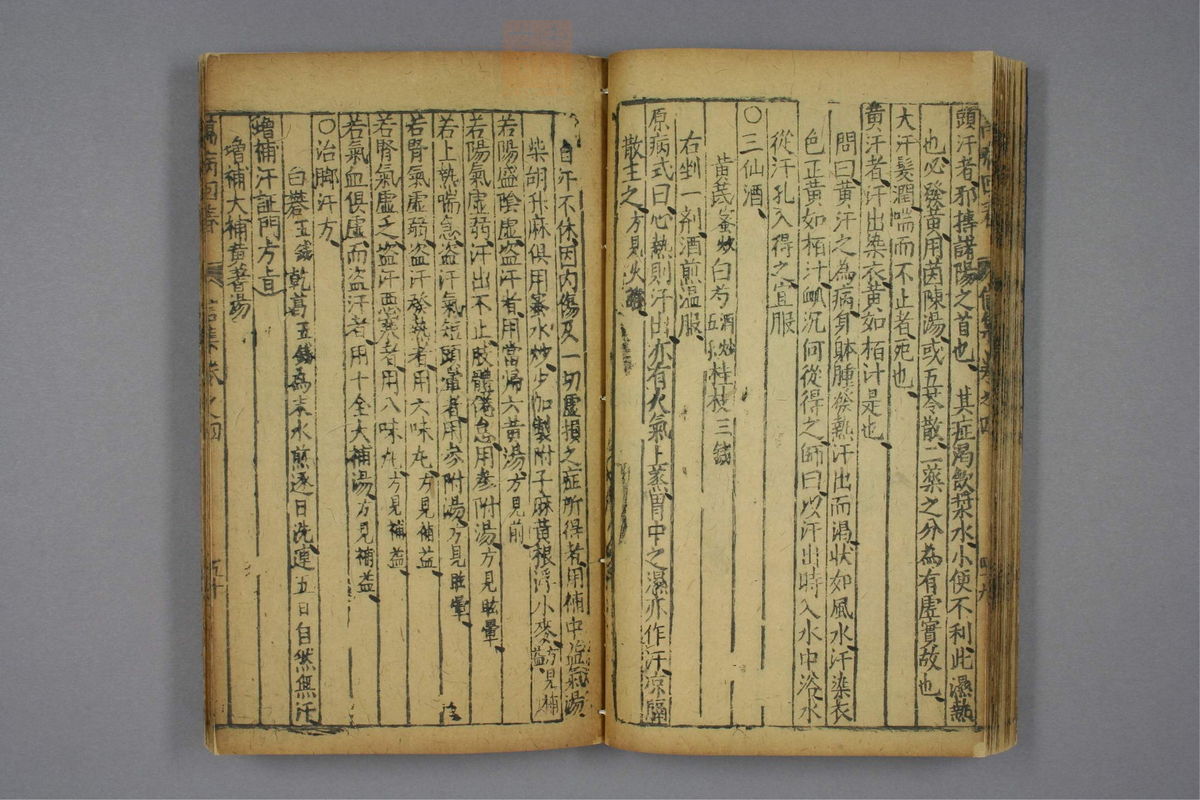 頭汗者、邪摶諸陽之首也、其症渴飲漿水、小便不利、此濕熱
也、必發黃、用茵陳湯、或五苓散、二藥之分、為有虛實故也、
大汗髮潤、喘而不止者、死也、
黃汗者、汗出染衣、黃如栢汁是也、
問曰、黃汗之為病、身躰腫、發熱汗出而渴、狀如風水、汗染衣
色正黃如栢汁、脉沉、何從得之、師曰、以汗出時、入水中浴、水
從汗孔入得之、宜服
〇三仙酒、
黃芪蜜炒 白芍酒炒 五 桂枝三錢
右剉一劑、酒煎溫服、
原病式曰、心熱則汗出、亦有火氣上蒸、胃中之濕、亦作汗、凉膈
散主之、方見火
自汗不休、因內傷及一切虛損之症所得者、用補中益氣湯、
柴胡升麻俱用蜜水炒、少加製附子麻黃根浮小麥、方見補益、
若陽盛陰虛盜汗者、用當歸六黃湯、方見前
若陽氣虛弱、汗出不止、肢體倦怠、用參附湯、方見眩暈、
若上熱喘急、盜汗氣短頭暈者、用參附湯、方見眩暈、
若腎氣虛弱、盜汗發熱者、用六味丸、方見補益、
若腎氣虛乏、盜汗惡寒者、用八味丸、方見補益、
若氣血俱虛、而盜汗者、用十全大補湯、方見補益、
〇治脚汗方、
白礬五錢 乾葛五錢 為末、水煎、逐日洗、連五日、自然無汗
增補汗証門方
增補大補黃蓍湯
萬病回春
卷之四
五十